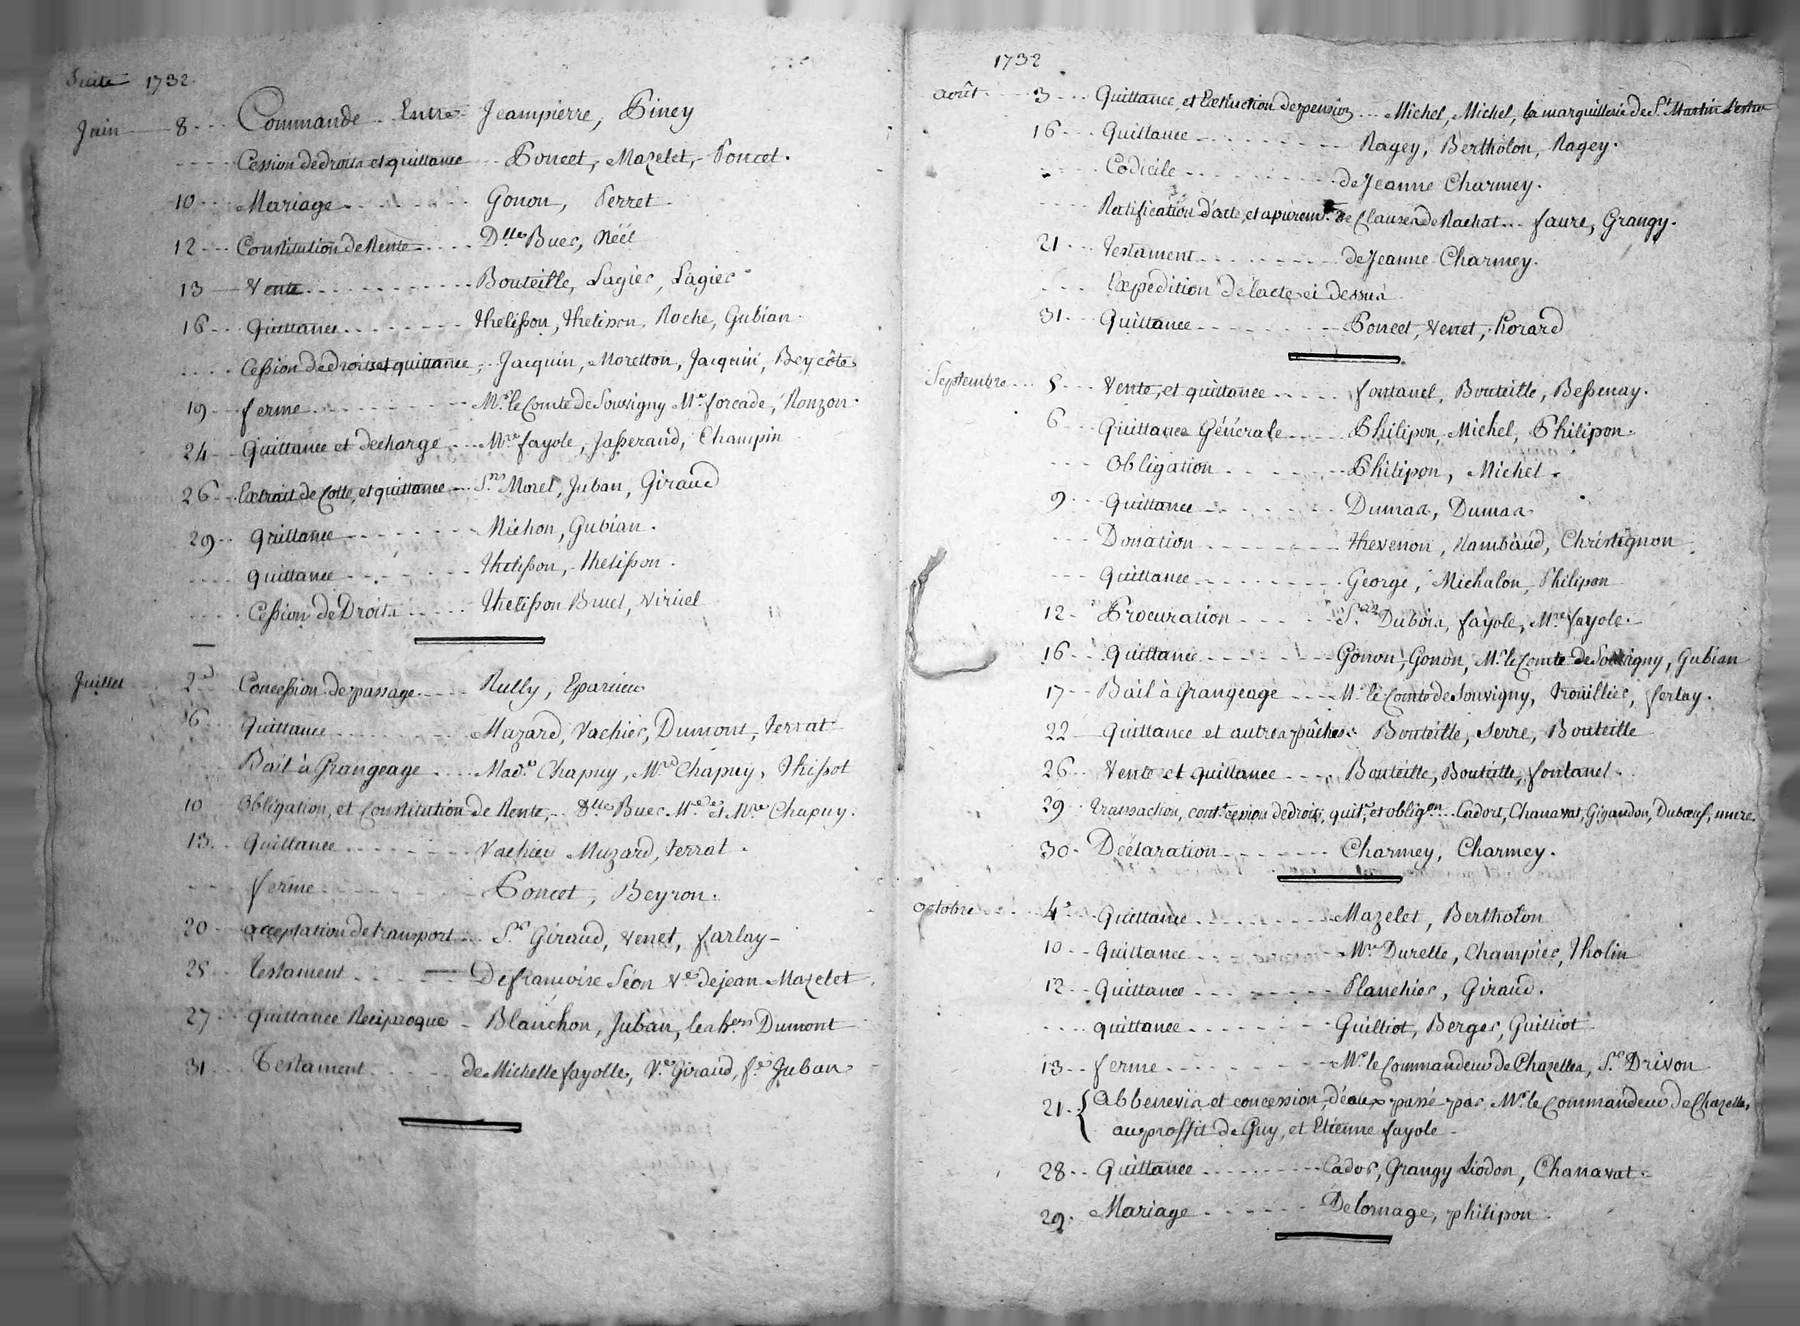 Suite 1732
Juin 8 Commande Entre Jeampierre, Piney
Cession de droits et quittance Poncet, Mazelet, Poncet.
10 Mariage Gonon, Perret
12 Constitution de Rente D.lle Buer, Néél
13 Vente Bouteille, Lagier, Lagier
16 Quittance Thelisson, Thelisson, Roche, Gubian
Cession de droits et quittance Jacquin, Moretton, Jacquin, Beycôte
19 ferme Mr. le Comte de Souvigny Mr. forcade, Ronzon
24 Quittance et decharge Mre fayole, Jasseraud, Champin
26 Extrait de Cotte, et quittance Srs Morel, Juban, Giraud
29 Quittance Michon, Gubian.
quittance Thelisson, Thelisson.
Cession de Droits Thelisson Bruel, Viricel
Juillet 2d Concession de passage Rully, Eparvier
6 Quittance Mazard, Vachier, Dumont, Terrat
Bail à Grangeage Made Chapuy, Mre Chapuy, Thissot
10 Obligation, et Constitution de Rente Dlle Buer Mr et Mre Chapuy.
13 Quittance Vachier Muzard, Terrat.
ferme Poncet, Beyron.
20 acceptation de transport Sr Giraud, Venet, farlay
25 Testament De francoise Séon Ve de jean Mazelet
27 quittance Reciproque Blanchon, Juban, les hers Dumont
31 Testament de Michelle fayolle, Ve Giraud, fe Juban
1732
août 3 Quittance, et Extinction de pension Michel, Michel, la marguillerie de St Martin Lestra
16 Quittance Ragey, Bertholon, Ragey.
Codicile de Jeanne Charmey.
Ratification d'acte, et apurem.t de Clauses de Rachat faure, Grangy.
21 Testament de Jeanne Charmey.
Expedition de l'acte ci dessus
31 Quittance Poncet, Venet,
Septembre 5 Vente, et quittance fontanel, Bouteille, Bessenay.
6 Quittance Générale Philipon, Michel, Philipon.
Obligation Philipon, Michel.
9 Quittance Dumas, Dumas
Donation Thevenon, Rambaud, Christignon
Quittance George, Michalon, Philipon
12 Procuration Srs Dubois, fayole, Mre fayole.
16 Quittance Gonon, Gonon, Mr. le Comte de Souvigny, Gubian
17 Bail à Grangeage Mr. le Comte de Souvigny, Trouillier, ferlay.
22 Quittance et autres pâches Bouteille, Serre, Bouteille
26 Vente et quittance Bouteille, Bouteille, fontanel.
29 Transaction, cont.t cession de droits, quit.e, et oblig.on Cadort, Chanavat, Gigandon, Duboeuf,
30 Déclaration Charmey, Charmey.
Octobre 4e Quittance Mazelet, Bertholon
10 Quittance Mre Durelle, Champier, Tholin
12 Quittance Planchier, Giraud.
quittance Guilliot, Berger, Guilliot
13 ferme Mr. le Commandeur de Chazelles, Sr Drivon
21 Abbenevis et concession d'eaux passé par Mr. le Commandeur de Chazelles,
au proffit de Guy, et Etienne fayole
28 Quittance Cador, Grangy Liodon, Chanavat
29 Mariage Delornage, philipon